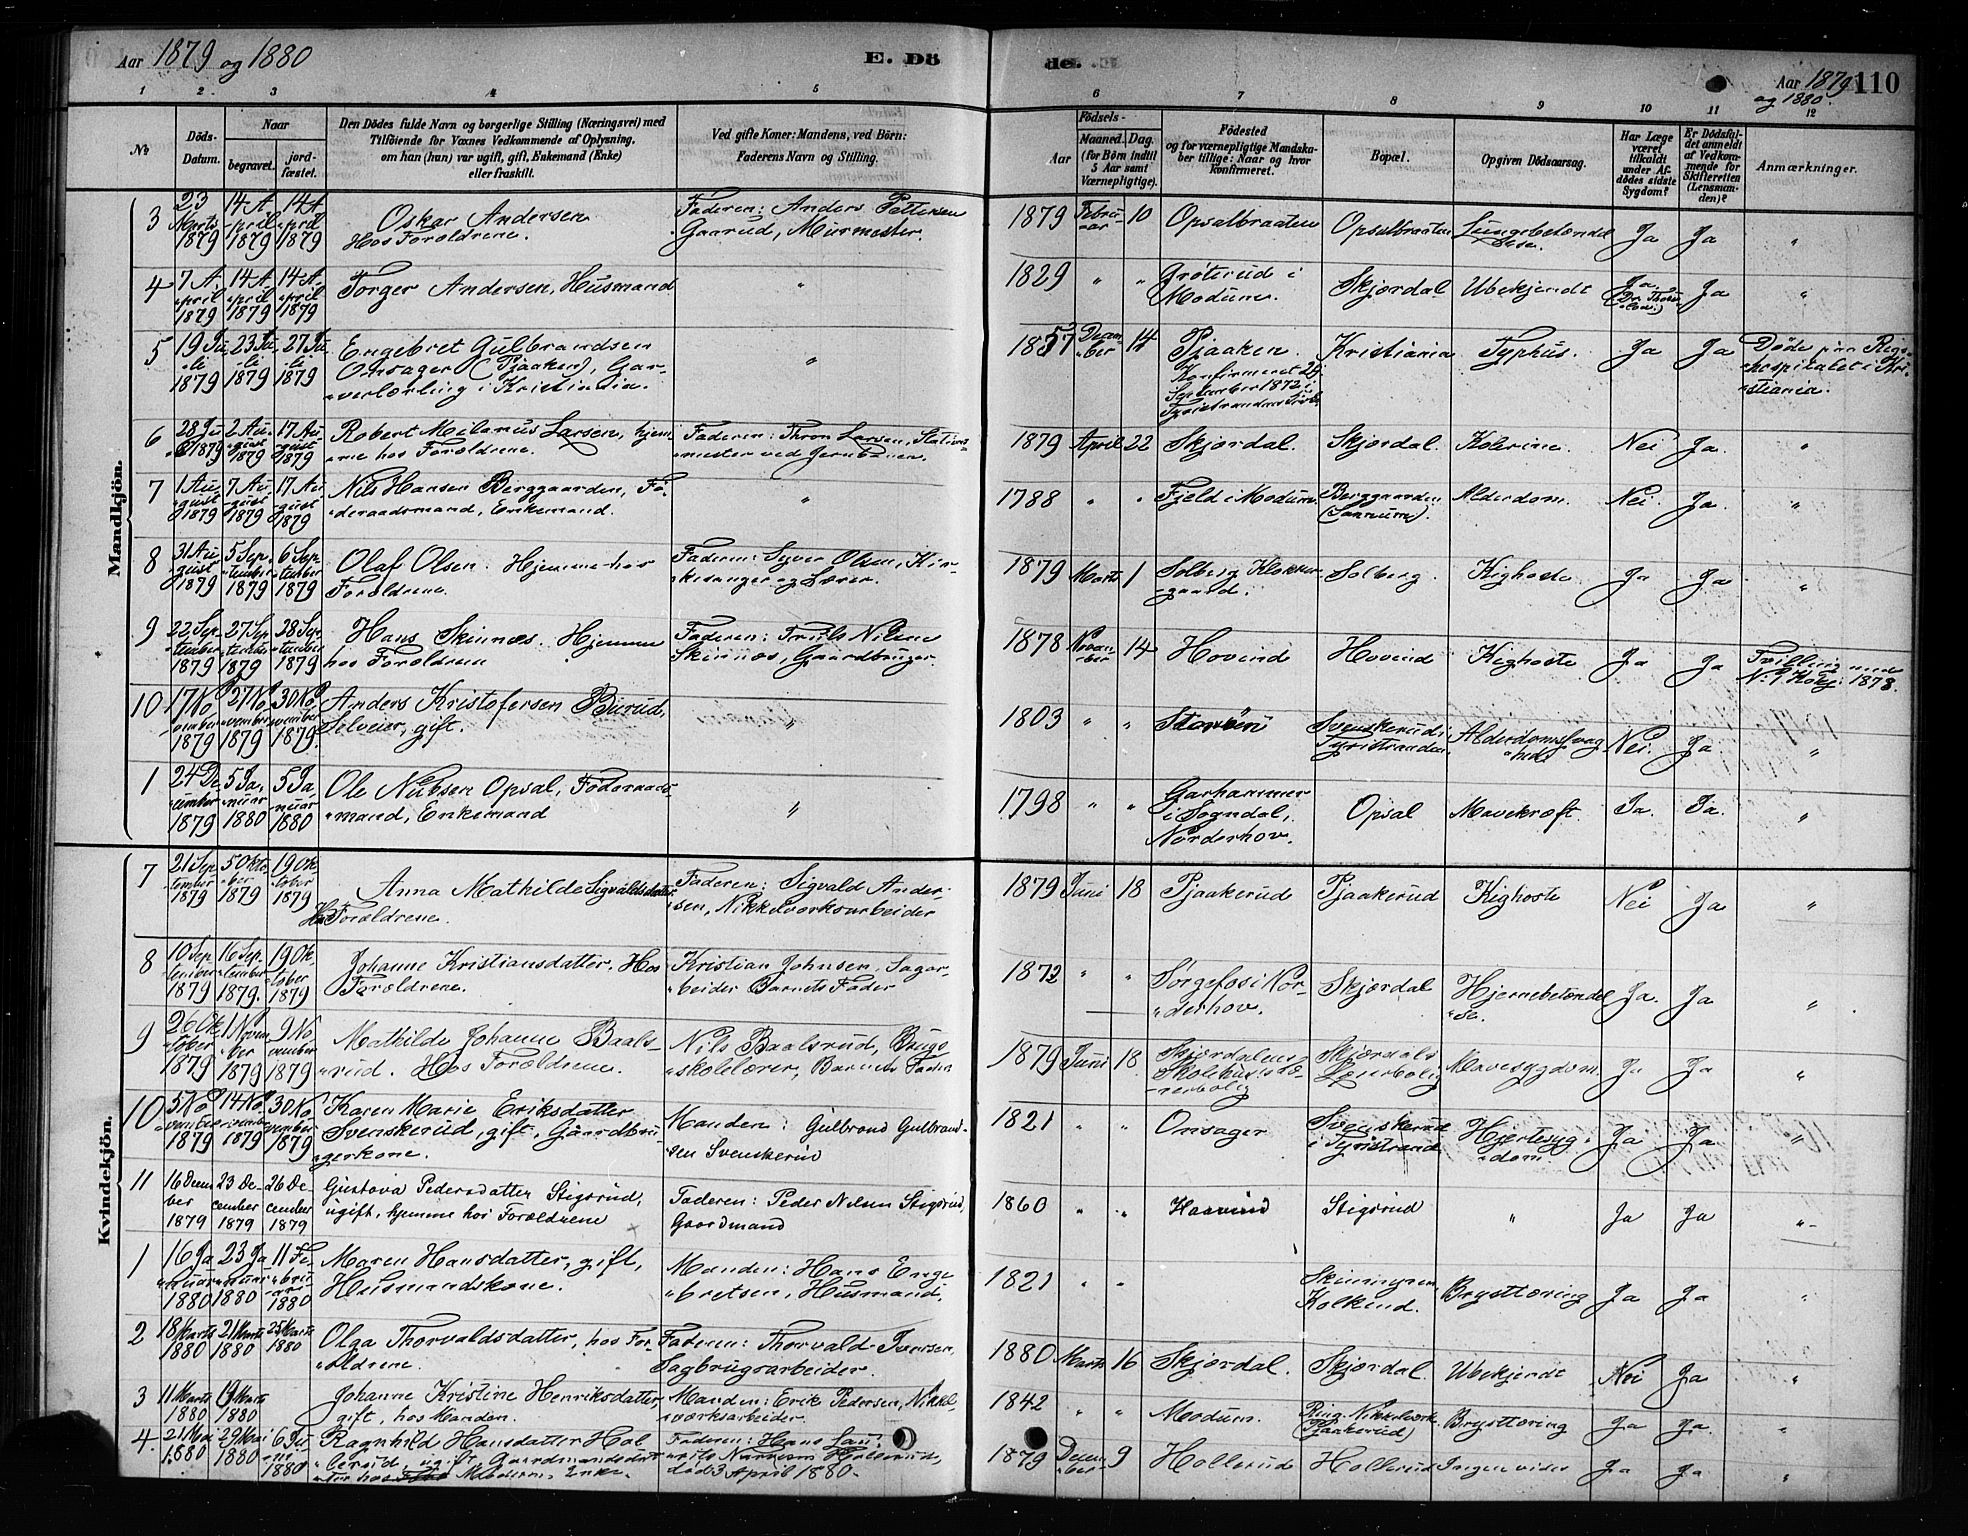 Aar 1879 og 1880
E. Dö
de.
Aar 1879 og 1880.
110
1 2. 3 4 5
6 7 8 9 10 11 12
No
Döds-Datum.
Naar
begravet.
jord-fæstet.
Den Dödes fulde Navn og borgerlige Stilling (Næringsvei) med
Tilföiende for Voxnes Vedkommende af Oplysning,
om han (hun) var ugift, gift, Enkemand (Enke)
eller fraskilt.
Ved gifte Koner: Mandens, ved Börn:
Faderens Navn og Stilling.
Födsels-
Aar
Maaned. Dag.
(for Börn indtil
5 Aar samt
Værnepligtige).
Födested
og for værnepligtige Mandska-
ber tillige: Naar og hvor
konfirmeret.
Bopæl.
Opgiven Dödsaarsag.
Har Læge
været
tilkaldt
under Af-
dödes sidste
Sygdom?
Er Dödsfal-
det anmeldt
af Vedkom-
mende for
Skifteretten
(Lensman-
den)?
Anmærkninger.
Mandkjön.
3 23 Marts 1879 14 April 1879 14 April 1879 Oskar Andersen Hos Forældrene. Faderen: Anders Pettersen Gaarud, Murmester. 1879 Februar 10 Opsalbraaten Opsalbraaten Lungebetændelse. Ja Ja "
4 7 April 1879 14 April 1879 14 April 1879 Torger Andersen, Husmand " 1829 " " Grøterud i Modum. Skjørdal Ubekjendt Ja Ja "
5 19 Juli 1879 23 Juli 1879 27 Juli 1879 Engebret Gulbrandsen Onsager (Pjaaken), Garverlærling i Kristiania. " 1857 December 14 Pjaaken. Konfirmeret 29 September 1872 i Tyristrandens Kristiania Typhus. Ja Ja Døde paa Rigshospitalet i Kristiania.
6 28 Juli 1879 2 August 1879 17 August 1879 Robert Milanus Larsen, hjemme hos Forældrene. Faderen: Thron Larsen, Stationsmester ved Jernbanen. 1879 April 22 Skjørdal. Skjørdal. Kolerine. Nei Ja "
7 1 August 1879 7 August 1879 17 August 1879 Nils Hansen Berggaarden, Føderaadsmand, Enkemand. " 1788 " " Fjeld i Modum Berggaarden Alderdom. Nei. Ja. "
8 31 August 1879 5 September 1879 6 September 1879 Olaf Olsen. Hjemme hos Forældrene. Faderen: Syver Olsen, Kirkesanger og Lærer. 1879 Marts 1 Solberg Klokkergaard. Solberg. Kighoste Ja Ja "
9 22 September 1879 27 September 1879 28 September 1879 Hans Skinnæs. Hjemme hos Forældrene Faderen: Truls Nilsen Skinnæs, Gaardbruger. 1878 November 14 Hovind Hovind Kighoste Ja Ja Tvilling med N. 9 1878.
10 17 November 1879 27 November 1879 30 November 1879. Anders Kristofersen Burud, Selveier, gift. " 1803 " " Svenskerud i Tyristranden. Alderdomssvaghed Nei. Ja "
1 24 December 1879 5 Januar 1880 5 Januar 1880 Ole Nubsen Opsal, Føderaadsmand, Enkemand " 1798 " " Garhammer i Sogndal, Norderhov. Opsal Mavekræft Ja. Ja. "
Kvindekjön.
7 21 September 1879 5 Oktober 1879 19 Oktober 1879 Anna Mathilde Sigvaldsdatter Hos Forældrene. Faderen: Sigvald Andersen, Nikkelværksarbeider 1879 Juni 18 Pjaakerud Pjaakerud Kighoste Nei Ja "
8 10 September 1879 16 September 1879. 19 Oktober 1879 Johanne Kristiansdatter. Hos Forældrene. Kristian Johnsen, Sagarbeider Barnets Fader 1872 " " Sørgefos i Norderhov. Skjørdal Hjernebetændelse. Ja. Ja "
9 26 Oktober 1879 1 November 1879 9 November 1879 Mathilde Johanne Baalsrud. Hos Forældrene. Nils Baalsrud, Brugsskolelærer, Barnets Fader 1879 Juni 18. Skjørdalens Skolehus Skjørdals Lærerbolig Mavesygdom. Ja Ja "
10 5 November 1879 14 November 1879 30 November 1879 Karen Marie Eriksdatter Svenskerud, gift, Gaardbrugerkone. Manden: Gulbrand Gulbrandsen Svenskerud 1821 " " Onsager Svenskerud i Tyristrand Hjertesygdom Ja Ja "
11 16 December 1879 23 December 1879 26 December 1879 Gustava Pedersdatter Stigsrud, ugift, hjemme hos Forældrene Faderen: Peder Nilsen Stigsrud, Gaardmand 1860 " " Haavind Stigsrud " Ja Ja "
1 16 Januar 1880 23 Januar 1880 11 Februar 1880 Maren Hansdatter, gift, Husmandskone. Manden: Hans Engebretsen, Husmand. 1821 " " Brysttæring Ja Ja "
2 18 Marts 1880 21 Marts 1880 25 Marts 1880 Olga Thorvaldsdatter, hos Forældrene. Faderen: Thorvald Iversen, Sagbrugsarbeider. 1880 Marts 16 Skjørdal. Skjørdal. Ubekjendt Nei Ja "
3 11 Marts 1880 19 Marts 1880 Johanne Kristine Henriksdatter, gift, hos Manden. Manden: Erik Pedersen, Nikkelværksarbeider. 1842 " " Modum. Ring. Nikkelværk (Pjaakerud) Brysttæring Ja Ja "
4. 21 Mai 1880 29 Mai 1880 6 Juni 1880 Ragnhild Hansdatter Hollerud, ugift, Gaardmandsdatter hos Moderen, Enke. Faderen: Hans død 3 April 1880. 1879 December 9 Hollerud Hollerud Ingen vides Ja Ja "